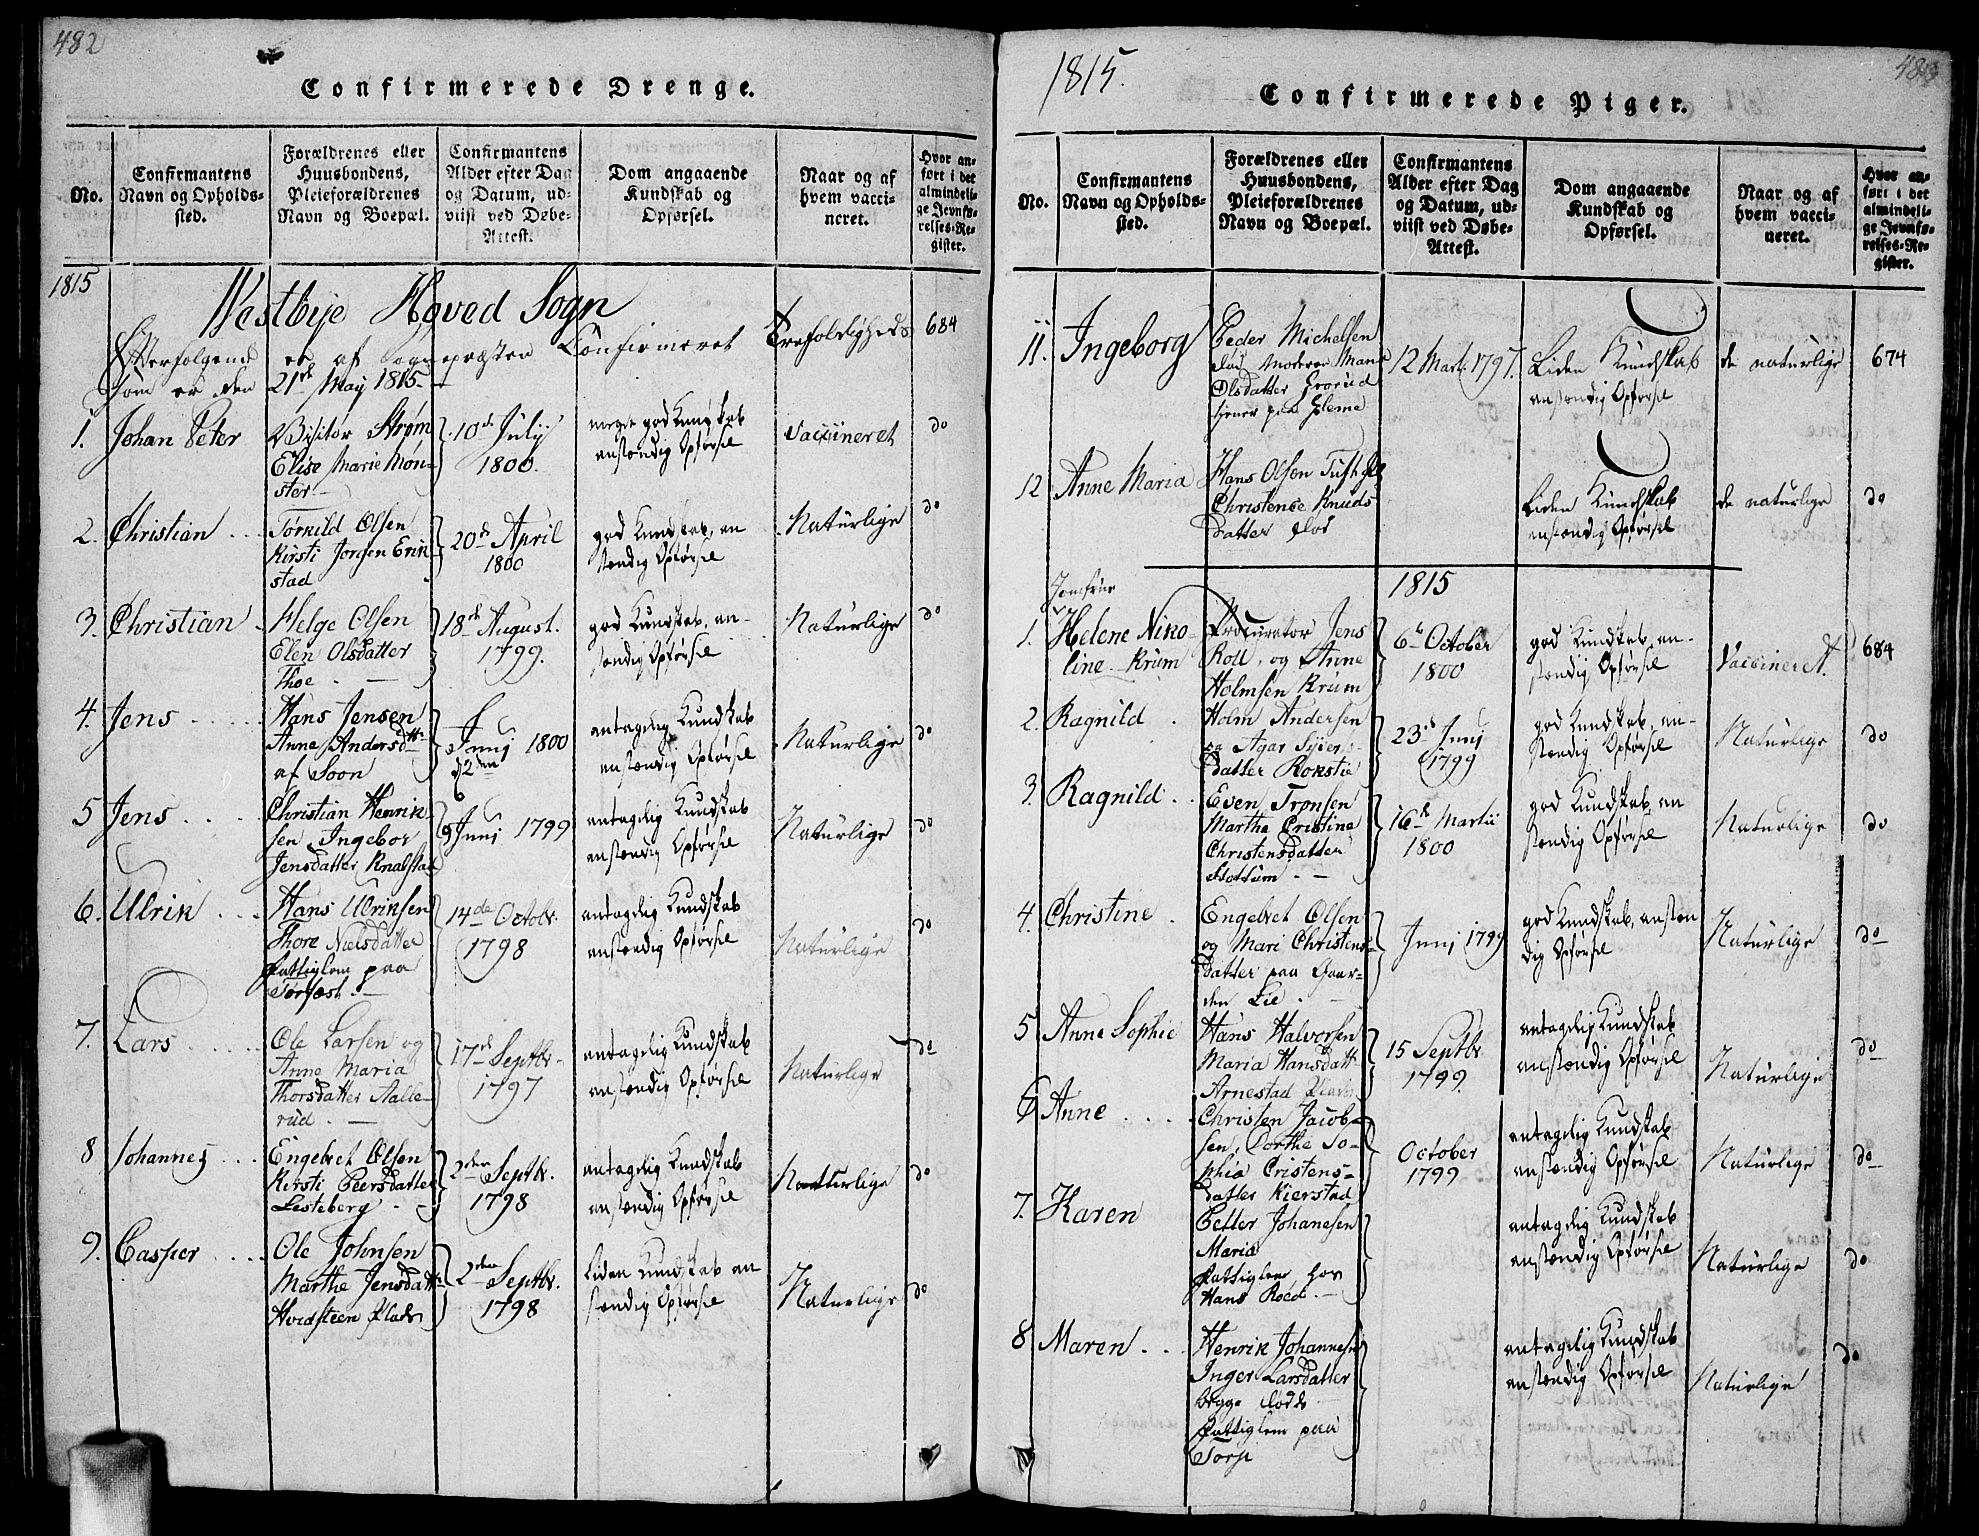 482
Confirmerede Drenge.
No.
Confirmantens
Navn og Opholds-
sted.
Forældrenes eller
Huusbondens,
Pleieforældrenes
Navn og Boepæl.
Confirmantens
Alder efter Dag
og Datum, ud-
viist ved Døbe-
Attest.
Dom angaaende
Kundskab og
Opførsel.
Naar og af
hvem vacci-
neret.
Hvor an-
ført i det
almindeli-
ge Jevnfø-
relses-Re-
gister.
1815
Westbye Hoved Sogn
Efterfølgende er af Sognepræsten Confirmeret Trefoldigheds 684
som er den 21de May 1815
1. Johan Peter
Visitør Strøm
Elise Marie Møn-
ster
10de Julij
1800.
meget god Kundskab
anstændig Opførsel
Vacsineret
do
2. Christian
Torkild Olsen
Kirsti Jorgen Erik
stad
20de April
1800
god Kundskab, an
stændig Opførsel
Naturlige
do
3. Christian
Helge Olsen
Elen Olsdatter
Thoe
18de August.
1799.
god Kundskab, an-
stændig Opførsel
Naturlige
do
4. Jens
Hans Jensen
Anne Andersdtt
af Soon
Junj 1800
d 2den
antagelig Kundskab
anstændig Opførsel
Naturlige
do
5 Jens
Christian Henrik
sen Ingebor
Jensdatter Knalstad
9 Junj 1799
antagelig Kundskab
anstændig Opførsel
Naturlige
do
6. Ulrik
Hans Ulriksen
Thore Nielsdatter
Fattiglem paa
14de Octobr.
1798
antagelig Kundskab
anstændig Opførsel
Naturlige
do
7. Lars
Ole Larsen og
Anne Maria
Thorsdatter Aalle-
rud.
17de Septbr.
1797
antagelig Kundskab
anstændig Opførsel
Naturlige
do
8 Johannes
Engebret Olsen
Kirsti Peersdatter
Lesteberg
2den Septbr.
1798
antagelig Kundskab
anstændig Opførsel
Naturlige
do
9. Casper
Ole Johnsen
Marthe Jensdatt
Hvidsteen Plads
2den Septbr.
1798
Liden Kundskab an
stændig Opførsel
Naturlige
do
1815.
483
Confirmerede Piger.
No.
Confirmantens
Navn og Opholds-
sted.
Forældrenes eller
Huusbondens,
Pleieforældrenes
Navn og Boepæl.
Confirmantens
Alder efter Dag
og Datum, ud-
viist ved Døbe-
Attest.
Dom angaaende
Kundskab og
Opførsel.
Naar og af
hvem vacci-
neret.
Hvor an-
ført i det
almindeli-
ge Jevnfø-
relses-Re-
gister.
11. Ingeborg
Peder Michelsen
død Moderen
Olsdatter
tjener paa Gleme
12 Mart. 1797.
Liden Kundskab
anstændig Opførsel
de naturlige
674
12 Anne Maria
Hans Olsen
Christense Knuds
datter død
Liden Kundskab
anstændig Opførsel
de naturlige
do
1815
Jomfrue
1. Helene Niko-
line Krum
Procurator Jens
Roll, og Anne
Holmsen Krum
6te October
1800
god Kundskab, an-
stændig Opførsel
Vacsineret.
684
2. Ragnild
Holm Andersen
og Agar Syvers
datter Rokstie
23de Junj
1799
god Kundskab, an-
stændig Opførsel
Naturlige
do
3. Ragnild
Even Tronsen
Marthe Cristine
Christensdatter
16de Martii
1800
god Kundskab, an
stændig Opførsel
Naturlige
do
4. Christine
Engebret Olsen
og Mari Christens
datter paa Gaar-
den Lie
Junj 1799
god Kundskab, anstæn
dig Opførsel
Naturlige
do
5 Anne Sophie
Hans Halvorsen
Maria Hansdatt
Arnestad Plads
15 Septbr.
1799.
antagelig Kundskab
anstændig Opførsel
Naturlige
do
6 Anne
Christen Jacob-
sen, Dorthe So-
phia Cristens-
datter Kierstad
October
1799
antagelig Kundskab
anstændig Opførsel
Naturlige
do
7. Karen
Petter Johanesen
Maria
Fattiglem hos
Hans Roed.
antagelig Kundskab
anstændig Opførsel
Naturlige
do
8 Maren
Henrik Johannes
Inger Larsdatter
begge døde
Fattiglem paa
Torp
antagelig Kundskab
anstændig Opførsel
Naturlige
do